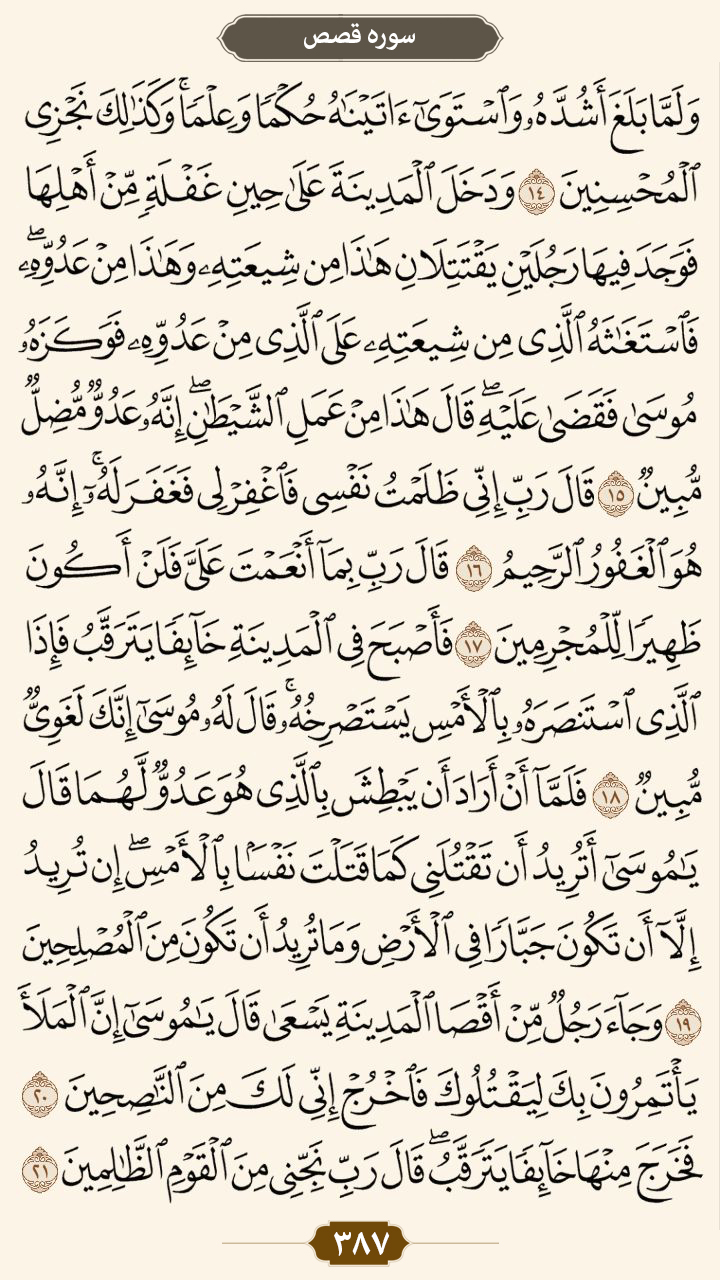 سوره قصص
وَلَمَّا بَلَغَ أَشُدَّهُۥ وَٱسْتَوَىٰٓ ءَاتَيْنَـٰهُ حُكْمًا وَعِلْمًا ۚ وَكَذَٰلِكَ نَجْزِى
ٱلْمُحْسِنِينَ ١٤ وَدَخَلَ ٱلْمَدِينَةَ عَلَىٰ حِينِ غَفْلَةٍ مِّنْ أَهْلِهَا
فَوَجَدَ فِيهَا رَجُلَيْنِ يَقْتَتِلَانِ هَـٰذَا مِن شِيعَتِهِۦ وَهَـٰذَا مِنْ عَدُوِّهِۦ ۖ
فَٱسْتَغَـٰثَهُ ٱلَّذِى مِن شِيعَتِهِۦ عَلَى ٱلَّذِى مِنْ عَدُوِّهِۦ فَوَكَزَهُۥ
مُوسَىٰ فَقَضَىٰ عَلَيْهِ ۖ قَالَ هَـٰذَا مِنْ عَمَلِ ٱلشَّيْطَـٰنِ ۖ إِنَّهُۥ عَدُوٌّ مُّضِلٌّ
مُّبِينٌ ١٥ قَالَ رَبِّ إِنِّى ظَلَمْتُ نَفْسِى فَٱغْفِرْ لِى فَغَفَرَ لَهُۥٓ ۚ إِنَّهُۥ
هُوَ ٱلْغَفُورُ ٱلرَّحِيمُ ١٦ قَالَ رَبِّ بِمَآ أَنْعَمْتَ عَلَىَّ فَلَنْ أَكُونَ
ظَهِيرًا لِّلْمُجْرِمِينَ ١٧ فَأَصْبَحَ فِى ٱلْمَدِينَةِ خَآئِفًا يَتَرَقَّبُ فَإِذَا
ٱلَّذِى ٱسْتَنصَرَهُۥ بِٱلْأَمْسِ يَسْتَصْرِخُهُۥ ۚ قَالَ لَهُۥ مُوسَىٰٓ إِنَّكَ لَغَوِىٌّ
مُّبِينٌ ١٨ فَلَمَّآ أَنْ أَرَادَ أَن يَبْطِشَ بِٱلَّذِى هُوَ عَدُوٌّ لَّهُمَا قَالَ
يَـٰمُوسَىٰٓ أَتُرِيدُ أَن تَقْتُلَنِى كَمَا قَتَلْتَ نَفْسًۢا بِٱلْأَمْسِ ۖ إِن تُرِيدُ
إِلَّآ أَن تَكُونَ جَبَّارًا فِى ٱلْأَرْضِ وَمَا تُرِيدُ أَن تَكُونَ مِنَ ٱلْمُصْلِحِينَ
١٩ وَجَآءَ رَجُلٌ مِّنْ أَقْصَا ٱلْمَدِينَةِ يَسْعَىٰ قَالَ يَـٰمُوسَىٰٓ إِنَّ ٱلْمَلَأَ
يَأْتَمِرُونَ بِكَ لِيَقْتُلُوكَ فَٱخْرُجْ إِنِّى لَكَ مِنَ ٱلنَّـٰصِحِينَ ٢٠
فَخَرَجَ مِنْهَا خَآئِفًا يَتَرَقَّبُ ۖ قَالَ رَبِّ نَجِّنِى مِنَ ٱلْقَوْمِ ٱلظَّـٰلِمِينَ ٢١
٣٨٧